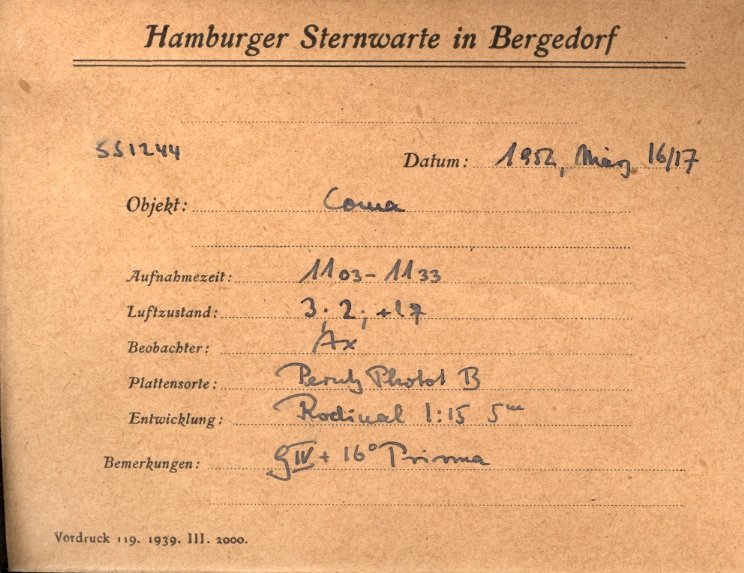 Hamburger Sternwarte in Bergedorf
SS1244
Datum: 1952, März 16/17
Objekt: Coma
Aufnahmezeit: 11 03 - 11 33
Luftzustand: 3; 2; +1,7
Beobachter: Ax
Plattensorte: Perutz Phot B
Entwicklung: Rodinal 1:15 5m
Bemerkungen: GIV + 16° Prisma
Vordruck 119. 1939. III. 2000.